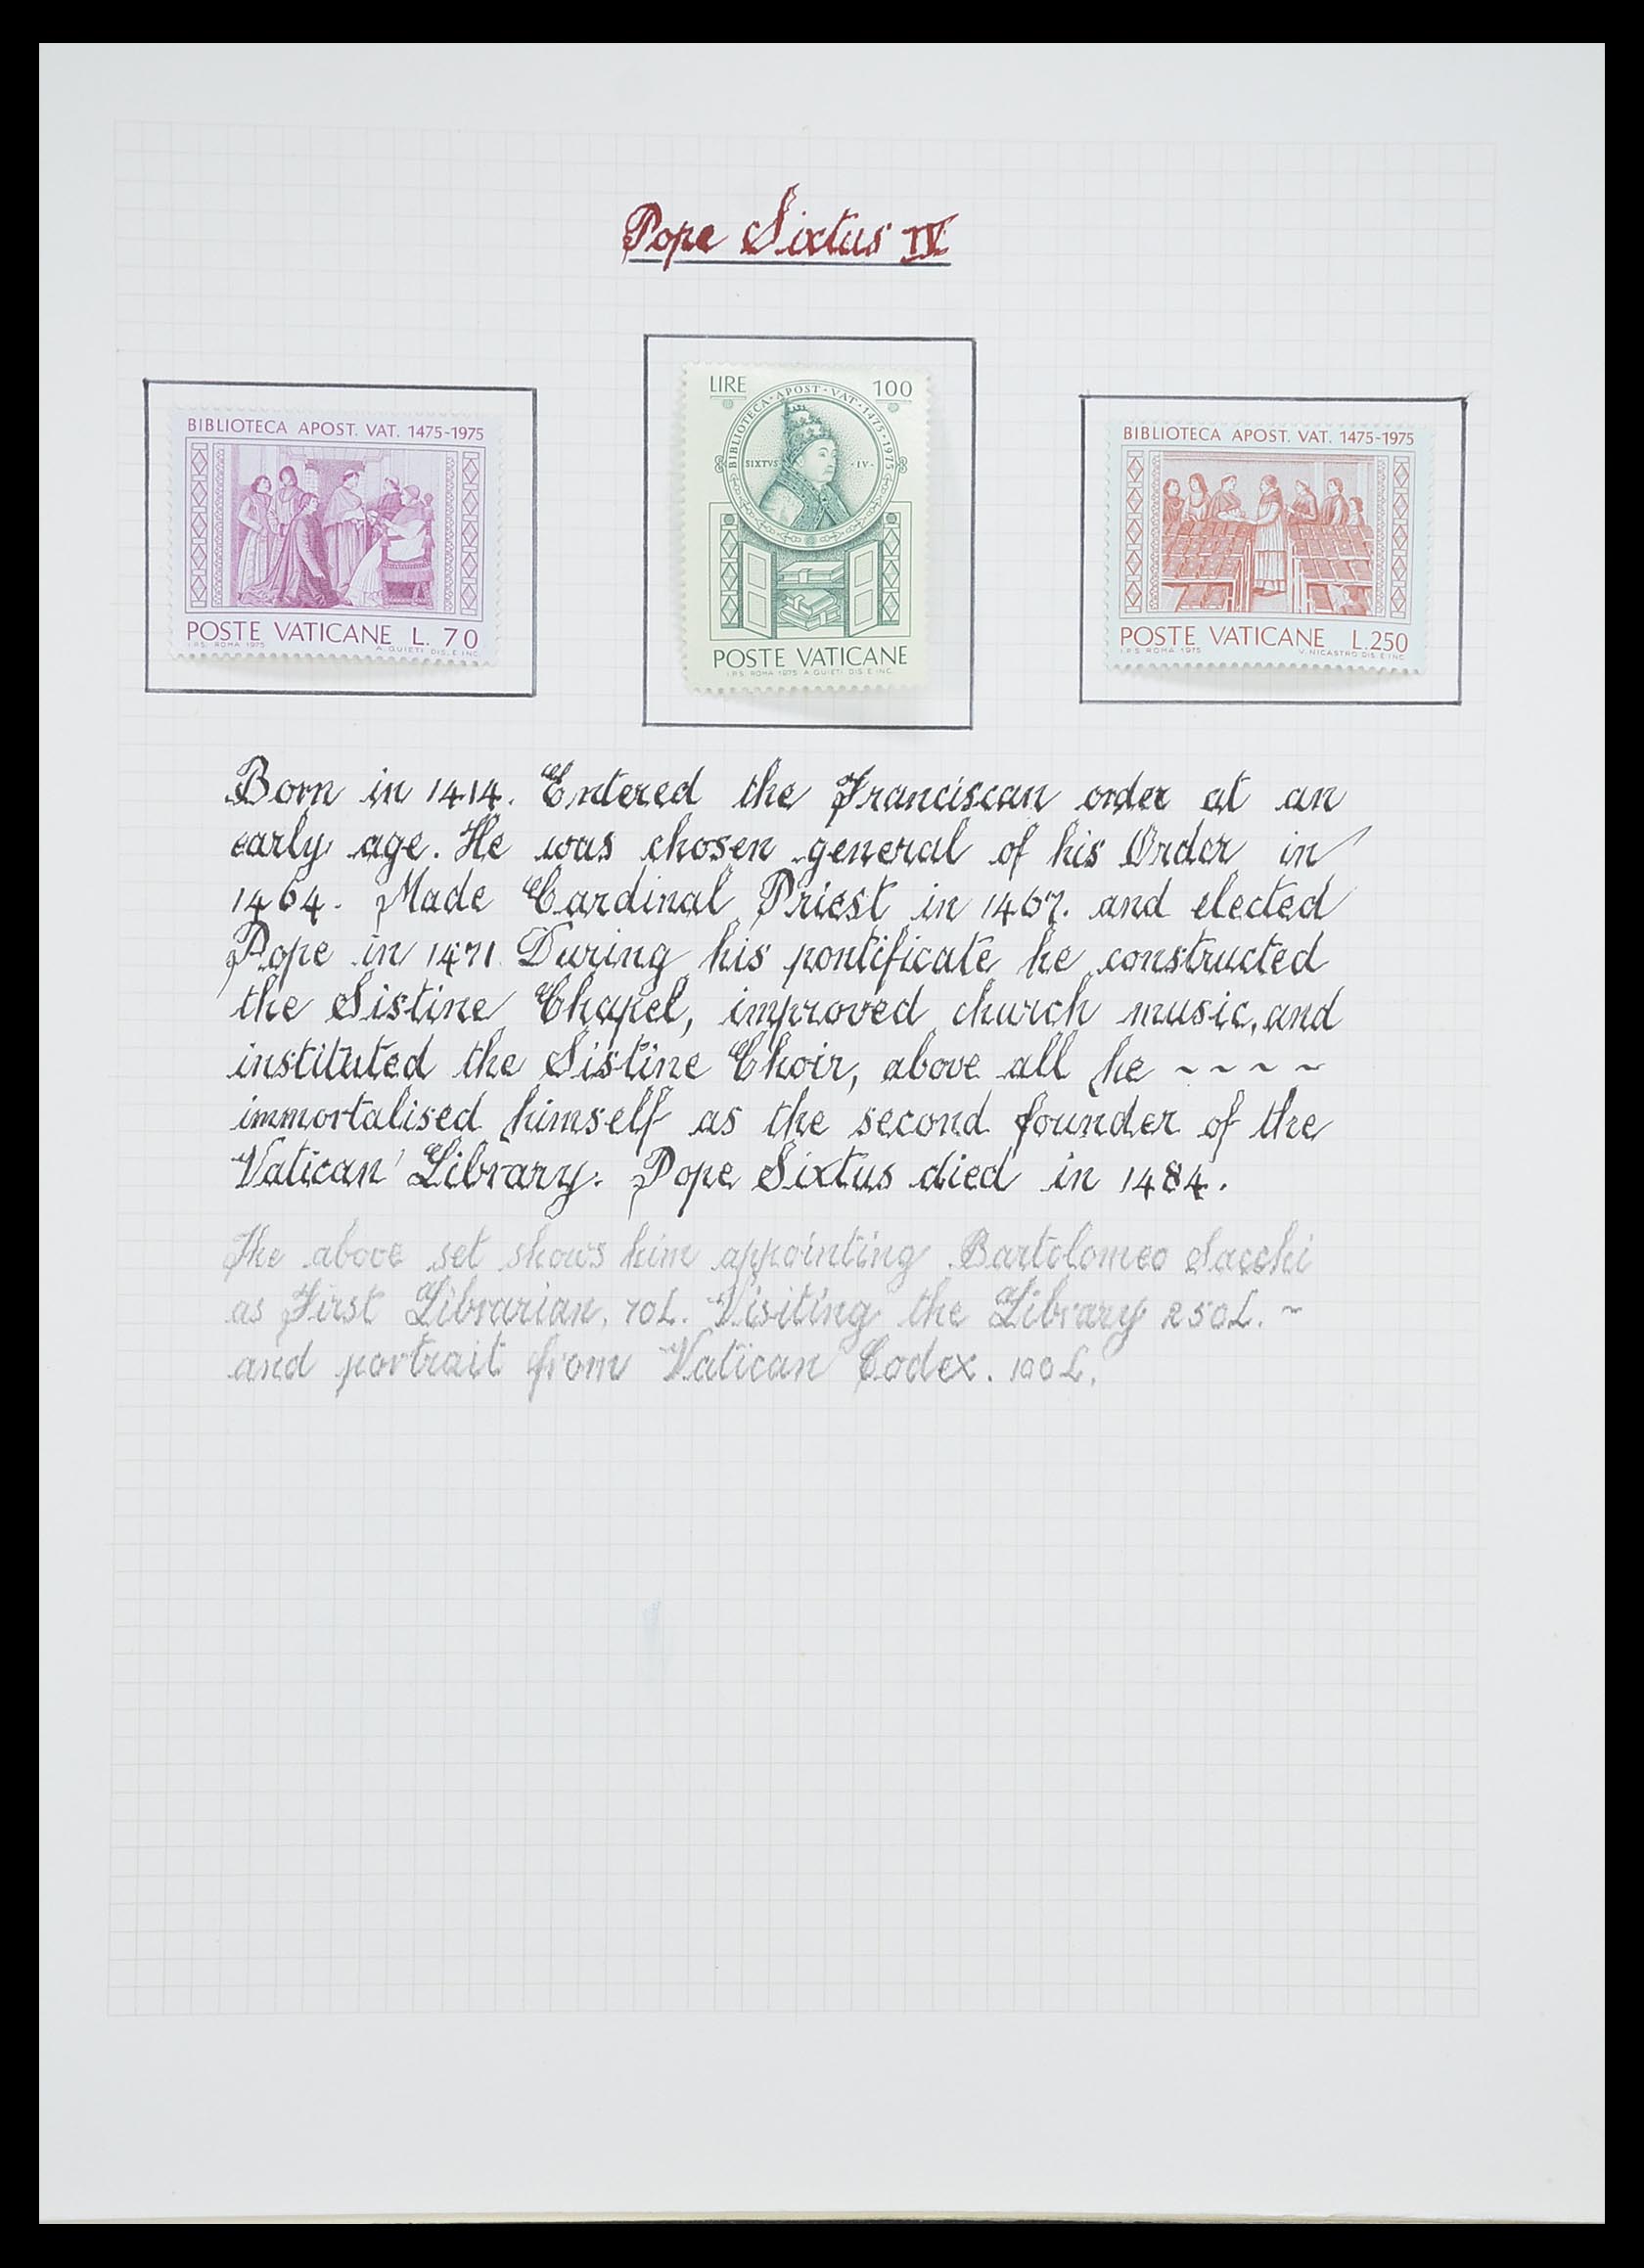 Pope Sixtus IV
BIBLIOTECA APOST. VAT. 1475-1975
POSTE VATICANE L. 70
I.P.S. ROMA 1975 A. QUIETI DIS. E INC.
LIRE 100
BIBLIOTECA · APOST · VAT · 1475-1975
SIXTVS · IV ·
POSTE VATICANE
I.P.S. ROMA 1975 A. QUIETI DIS. E INC.
BIBLIOTECA APOST. VAT. 1475-1975
POSTE VATICANE L.250
I.P.S. ROMA 1975 V. NICASTRO DIS. E INC.
Born in 1414. Entered the Franciscan order at an
early age. He was chosen general of his Order in
1464. Made Cardinal Priest in 1467. and elected
Pope in 1471. During his pontificate he constructed
the Sistine Chapel, improved church music, and
instituted the Sistine Choir, above all he ~ ~ ~ ~
immortalised himself as the second founder of the
Vatican Library. Pope Sixtus died in 1484.
The above set shows him appointing Bartolomeo Sacchi
as First Librarian. 70L. Visiting the Library 250L. ~
and portrait from Vatican Codex. 100L.